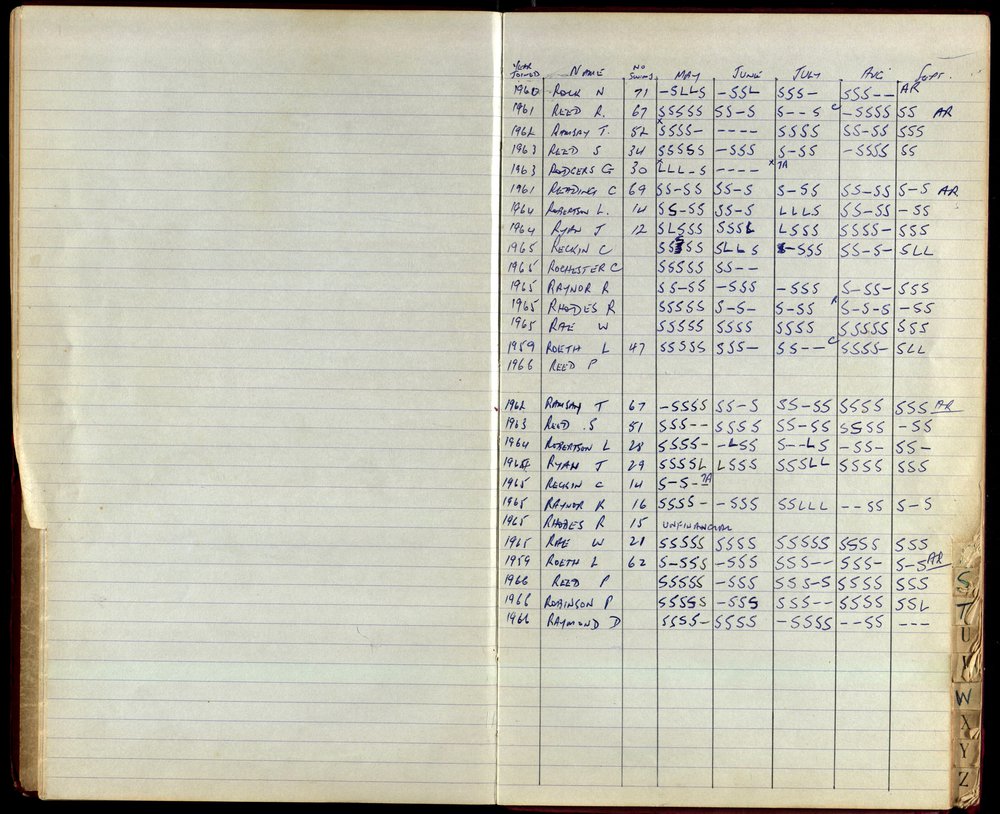 YEAR JOINED NAME NO SWIMS MAY JUNE JULY AUG SEPT.
1960 ROCK N 71 -SLLS -SSL SSS- SSS-- AR
1961 REED R. 67 SSSSS SS-S S--S C -SSSS SS AR
1962 RAMSAY T. 52 SSSS- ---- SSSS SS-SS SSS
1963 REED S 34 SSSSS -SSS S-SS -SSSS SS
1963 RODGERS G 30 X LLL-S ---- X TA
1961 READING C 69 SS-SS SS-S S-SS SS-SS S-S AR
1964 ROBERTSON L. 14 SS-SS SS-S LLLS SS-SS -SS
1964 RYAN J 12 SLSSS SSSL LSSS SSSS- SSS
1965 RECKIN C SSSSS SLLS S-SSS SS-S- SLL
1965 ROCHESTER C SSSSS SS--
1965 RAYNOR R SS-SS -SSS -SSS S-SS- SSS
1965 RHODES R SSSSS S-S- S-SS R S-S-S -SS
1965 RAE W SSSSS SSSS SSSS SSSSS SSS
1959 ROETH L 47 SSSSS SSS- SS-- C SSSS- SLL
1966 REED P
1962 RAMSAY T 67 -SSSS SS-S SS-SS SSSS SSS AR
1963 REED .S 51 SSS-- SSSS SS-SS SSSS -SS
1964 ROBERTSON L 28 SSSS- -LSS S--LS -SS- SS-
1964 RYAN J 29 SSSSL LSSS SSSLL SSSS SSS
1965 RECKIN C 14 S-S- TA
1965 RAYNOR R 16 SSSS- -SSS SSLLL --SS S-S
1965 RHODES R 15 UNFINANCIAL
1965 RAE W 21 SSSSS SSSS SSSSS SSSS SSS
1959 ROETH L 62 S-SSS -SSS SSS-- SSS- S-S AR
1966 REED P SSSSS -SSS SSS-S SSSS SSS
1966 ROBINSON P SSSSS -SSS SSS-- SSSS SSL
1966 RAYMOND D SSSS- SSSS -SSSS --SS ---
S
T
U
W
X
Y
Z